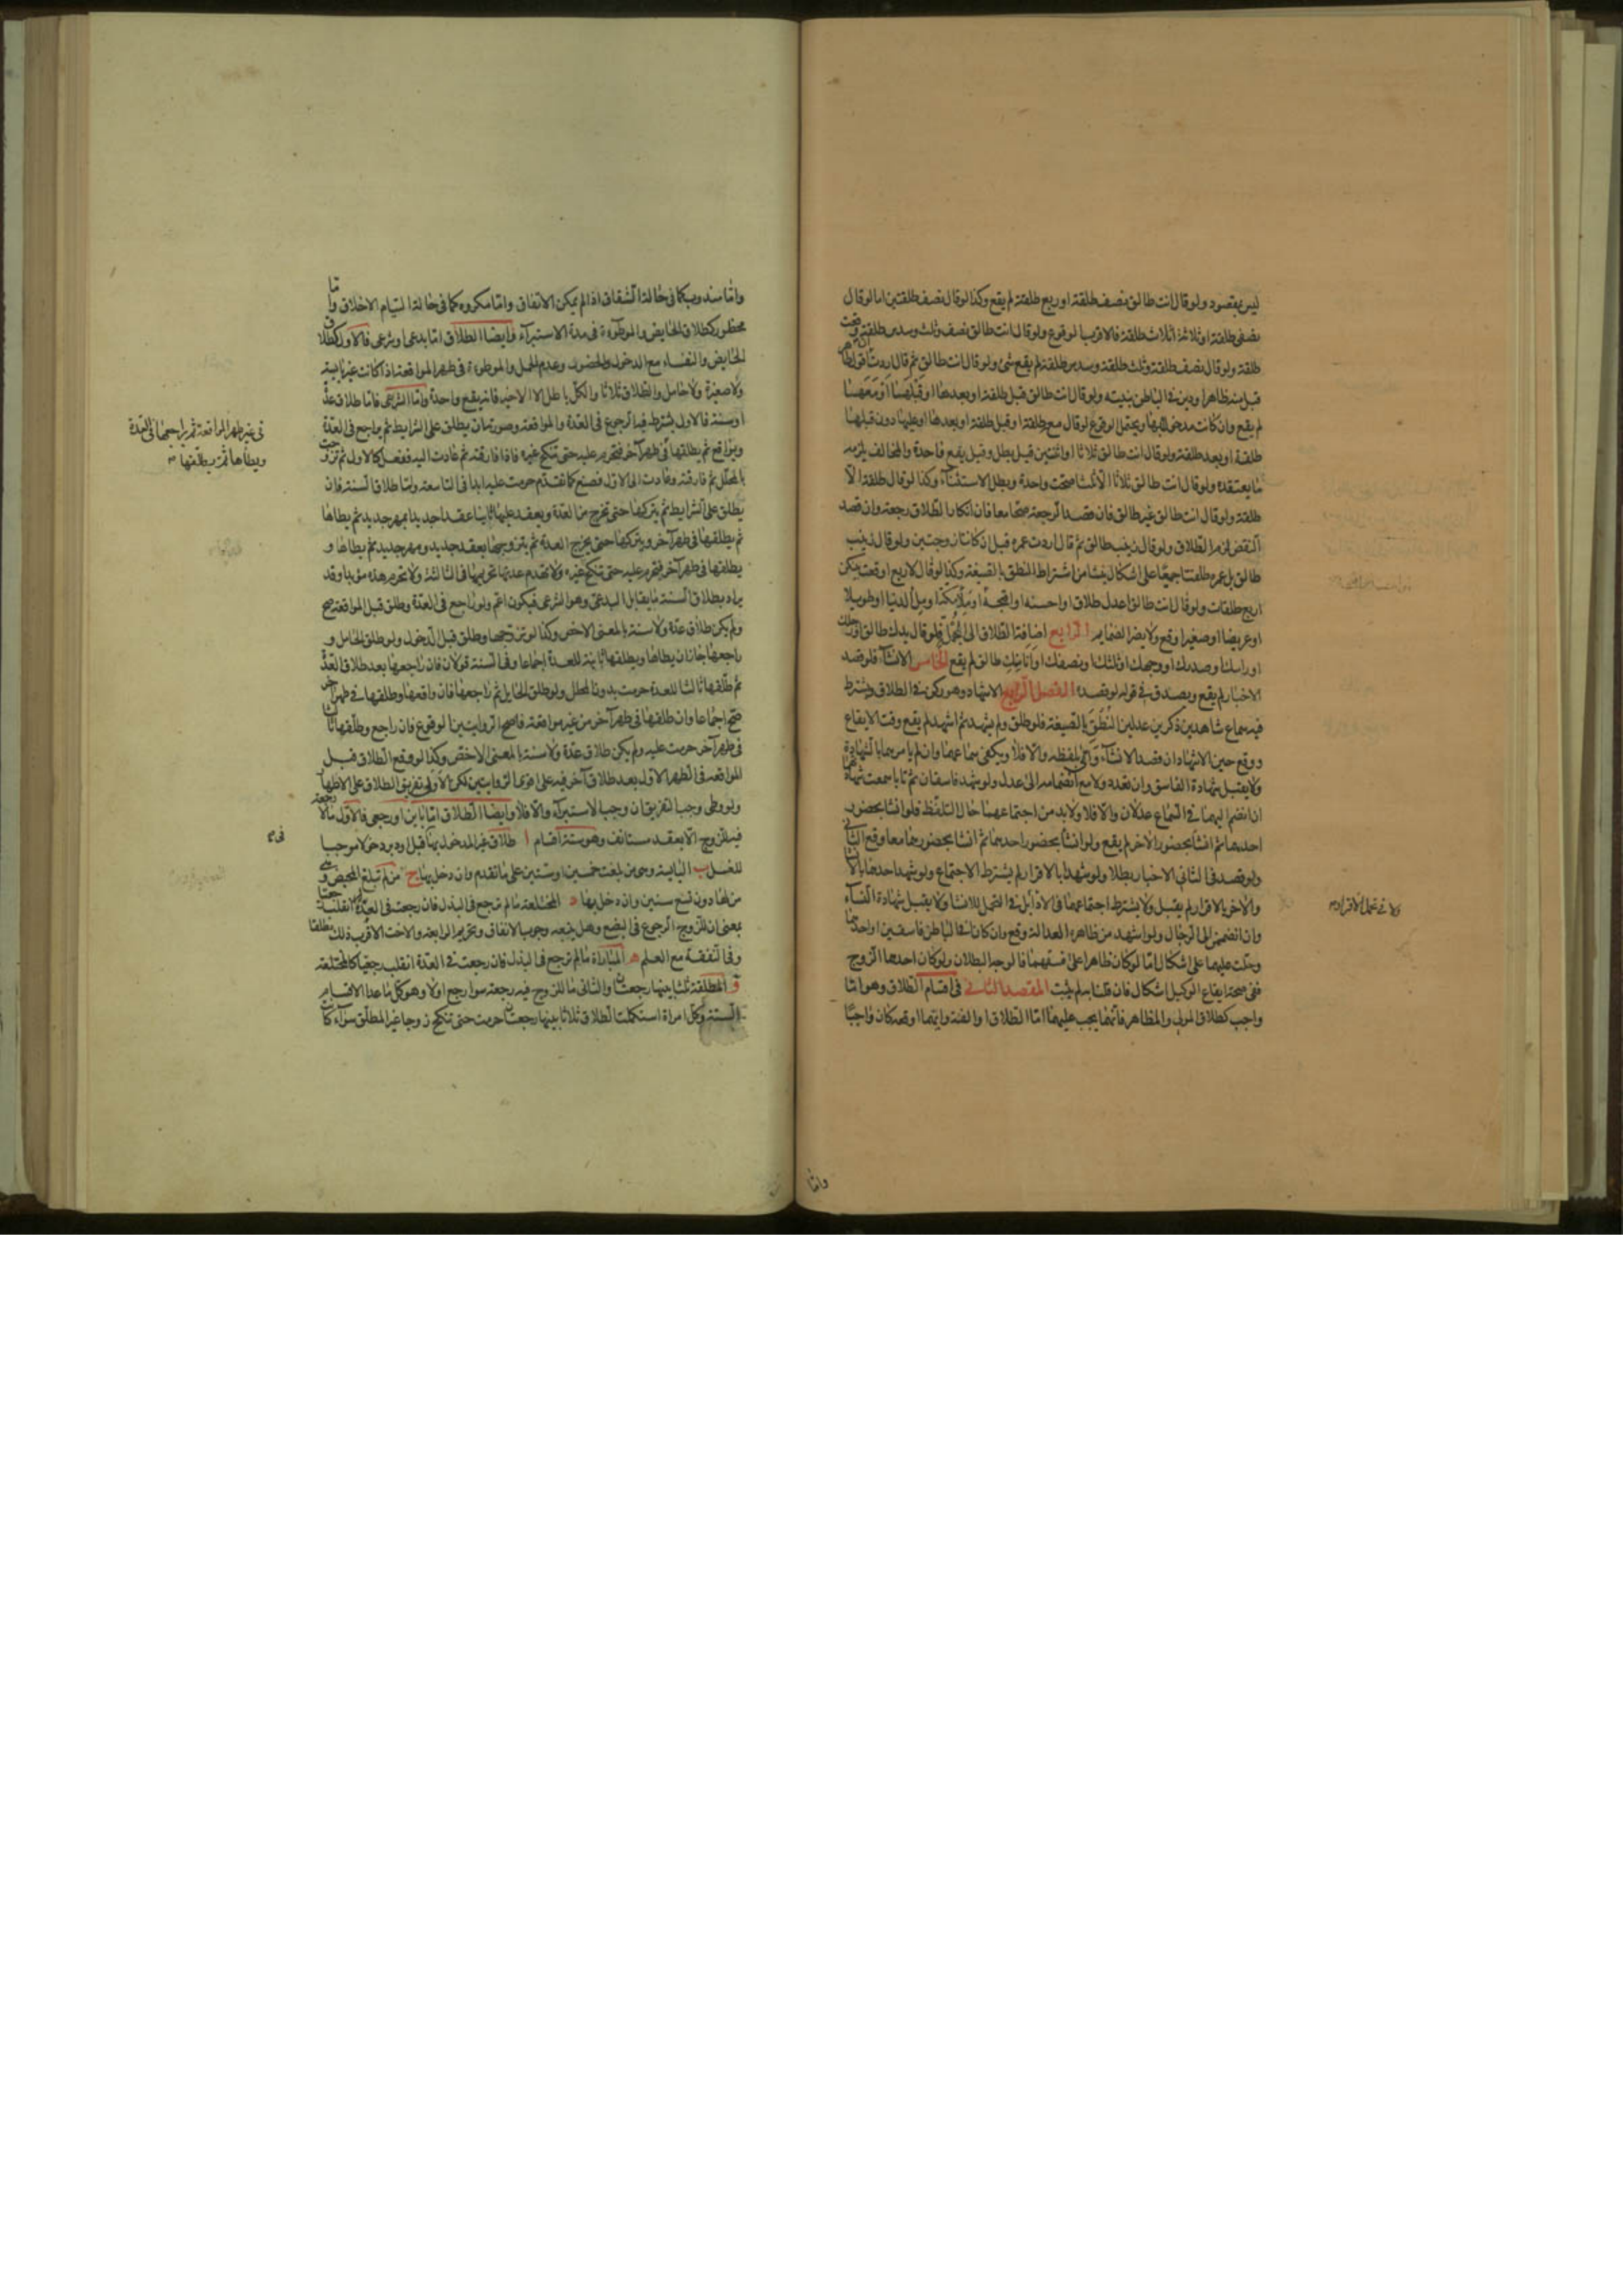 ليس بمقصود ولو قال انت طالق نصف طلقة او ربع طلقة لم يقع وكذا لو قال نصف طلقتين اما لو قال
نصفي طلقة او ثلاثة اثلاث طلقة فالاقرب الوقوع ولو قال انت طالق نصف وثلث وسدس طلقة وقعت
طلقة ولو قال نصف طلقة وثلث طلقة وسدس طلقة لم يقع شئ ولو قال انت طالق ثم قال اردت ان اقول طاهر
قبل منه ظاهرا ودين في الباطن بنيته ولو قال انت طالق قبل طلقة او بعدها او قبلها او معها
لم يقع وان كانت مدخولا بها ويحتمل الوقوع لو قال مع طلقة او قبل طلقة او بعدها او عليها دون قبلها
طلقة او بعد طلقة ولو قال انت طالق ثلاثا او اثنتين قيل يبطل وقيل يقع واحدة والمخالف يلزمه
ما يعتقده ولو قال انت طالق ثلاثا الا ثلثا صحت واحدة وبطل الاستثناء وكذا لو قال طلقة الا
طلقة ولو قال انت طالق غير طالق فان قصد الرجعة صحا معا فان انكار الطلاق رجعة وان قصد
النقض لزم الطلاق ولو قال زينب طالق ثم قال اردت عمرة قبل ان كانتا زوجتين ولو قال زينب
طالق بل عمرة طلقتا جميعا على اشكال ينشا من اشتراط النطق بالصيغة وكذا لو قال لاربع اوقعت بينكن
اربع طلقات ولو قال انت طالق اعدل طلاق او احسنه او اقبحه او ملأ مكة او ملأ الدنيا او طويلا
او عريضا او صغيرا وقع ولا يضر الضمايم الرابع اضافة الطلاق الى المحل فلو قال يدك طالق او رجلك
او راسك او صدرك او وجهك او ثلثك او نصفك او انا منك طالق لم يقع الخامس الانشاء فلو قصد
الاخبار لم يقع ويصدق في قوله لو قصده الفصل الرابع الاشهاد وهو ركن في الطلاق ويشترط
فيه سماع شاهدين ذكرين عدلين النطق بالصيغة فلو طلق ولم يشهد ثم اشهد لم يقع وقت الايقاع
ووقع حين الاشهاد ان قصد الانشاء واتى بلفظه والا فلا ويكفي سماعهما وان لم يامرهما بالشهادة
ولا يقبل شهادة الفاسق وان تعدد ولا مع انضمامه الى عدل ولو شهد فاسقان ثم تابا سمعت شهادتهما
ان انضم اليهما في السماع عدلان والا فلا ولا بد من اجتماعهما حال التلفظ فلو انشا بحضور
احدهما ثم انشا بحضور الاخر لم يقع ولو انشا بحضور احدهما ثم انشا بحضورهما معا وقع الثاني
ولو قصد في الثاني الاخبار بطلا ولو شهدا بالاقرار لم يشترط الاجتماع ولو شهد احدهما بالانشا
والاخر بالاقرار لم يقبل ولا يشترط اجتماعهما في الاداء بل في التحمل للانشا ولا يقبل شهادة النساء
وان انضممن الى الرجال ولو اشهد من ظاهره العدالة وقع وان كانا في الباطن فاسقين او احدهما
وحلت عليهما على اشكال اما لو كان ظاهرا على فسقهما فالوجه البطلان ولو كان احدهما الزوج
ففي صحة ايقاع الوكيل اشكال فان قلنا به لم يثبت المقصد الثاني في اقسام الطلاق وهو اما
واجب كطلاق المولي والمظاهر فانهما يجب عليهما اما الطلاق او الفئة وايهما اوقعه كان واجبا
ولا في تحمل الاقرار
واما
واما مندوب كما في حالة الشقاق اذا لم يمكن الاتفاق واما مكروه كما في حالة التيام الاخلاق واما
محظور كطلاق الحايض والموطوءة في مدة الاستبراء وايضا الطلاق اما بدعي او شرعي فالاول كطلاق
الحايض والنفساء مع الدخول والحضور وعدم الحمل والموطوءة في طهر المواقعة اذا كانت غير يايسة
ولا صغيرة ولا حامل والطلاق ثلاثا والكل باطل الا الاخير فانه يقع واحدة واما الشرعي فاما طلاق عدة
او سنة فالاول يشترط فيه الرجوع في العدة والمواقعة وصورته ان يطلق على الشرايط ثم يراجع في العدة
ويواقع ثم يطلقها في طهر آخر فتحرم عليه حتى تنكح غيره فاذا فارقته ثم عادت اليه ففعل كالاول ثم تزوجت
بالمحلل ثم فارقته وعادت الى الاول فصنع كما تقدم حرمت عليه ابدا في التاسعة واما طلاق السنة فان
يطلق على الشرايط ثم يتركها حتى تخرج من العدة ويعقد عليها ثانيا عقدا جديدا بمهر جديد ثم يطاها
ثم يطلقها في طهر آخر ويتركها حتى يخرج العدة ثم يتزوجها بعقد جديد ومهر جديد ثم يطاها و
يطلقها في طهر آخر فتحرم عليه حتى تنكح غيره ولا تهدم عدتها تحريمها في الثالثة ولا تحرم هذه مؤبدا وقد
يراد بطلاق السنة ما يقابل البدعي وهو الشرعي فيكون اعم ولو راجع في العدة وطلق قبل المواقعة صح
ولم يكن طلاق عدة ولا سنة بالمعنى الاخص وكذا لو تزوجها وطلق قبل الدخول ولو طلق الحامل و
راجعها جاز ان يطاها ويطلقها ثانية للعدة اجماعا وفي السنة قولان فان راجعها بعد طلاق العدة
ثم طلقها ثالثا للعدة حرمت بدون المحلل ولو طلق الحايل ثم راجعها فان واقعها وطلقها في طهر آخر
صح اجماعا وان طلقها في طهر آخر من غير مواقعة فاصح الروايتين الوقوع فان راجع وطلقها ثالثا
في طهر آخر حرمت عليه ولم يكن طلاق عدة ولا سنة بالمعنى الاخص وكذا لو وقع الطلاق قبل
المواقعة في الطهر الاول بعد طلاق آخر فيه على اقوى الروايتين لكن الاولى تفريق الطلاق على الاطهار
ولو وطئ وجب التفريق ان وجب الاستبراء والا فلا وايضا الطلاق اما باين او رجعي فالاول مالا رجعة
فيه للزوج الا بعقد مستانف وهو ستة اقسام ا طلاق غير المدخول بها قبل او دبر دخولا موجبا
للغسل ب اليايسة وهي من بلغت خمسين او ستين على ما تقدم وان دخل بها ج من لم تبلغ المحيض وهي
من لها دون تسع سنين وان دخل بها د المختلعة ما لم ترجع في البذل فان رجعت في العدة انقلبت رجعيا
بمعنى ان للزوج الرجوع في البضع وهل يتبعه وجوب الانفاق وتحريم الرابعة والاخت الاقرب ذلك مطلقا
وفي النفقة مع العلم ه المباراة ما لم ترجع في البذل فان رجعت في العدة انقلب رجعيا كالمختلعة
و المطلقة ثلثا بينها رجعتان والثاني ما للزوج فيه رجعة سوا رجع اولا وهو كل ما عدا الاقسام
الستة وكل امراة استكملت الطلاق ثلاثا بينها رجعتان حرمت حتى تنكح زوجا غير المطلق سواء كان
في غير طهر المواقعة ثم يراجعها في العدة
ويطاها ثم يطلقها